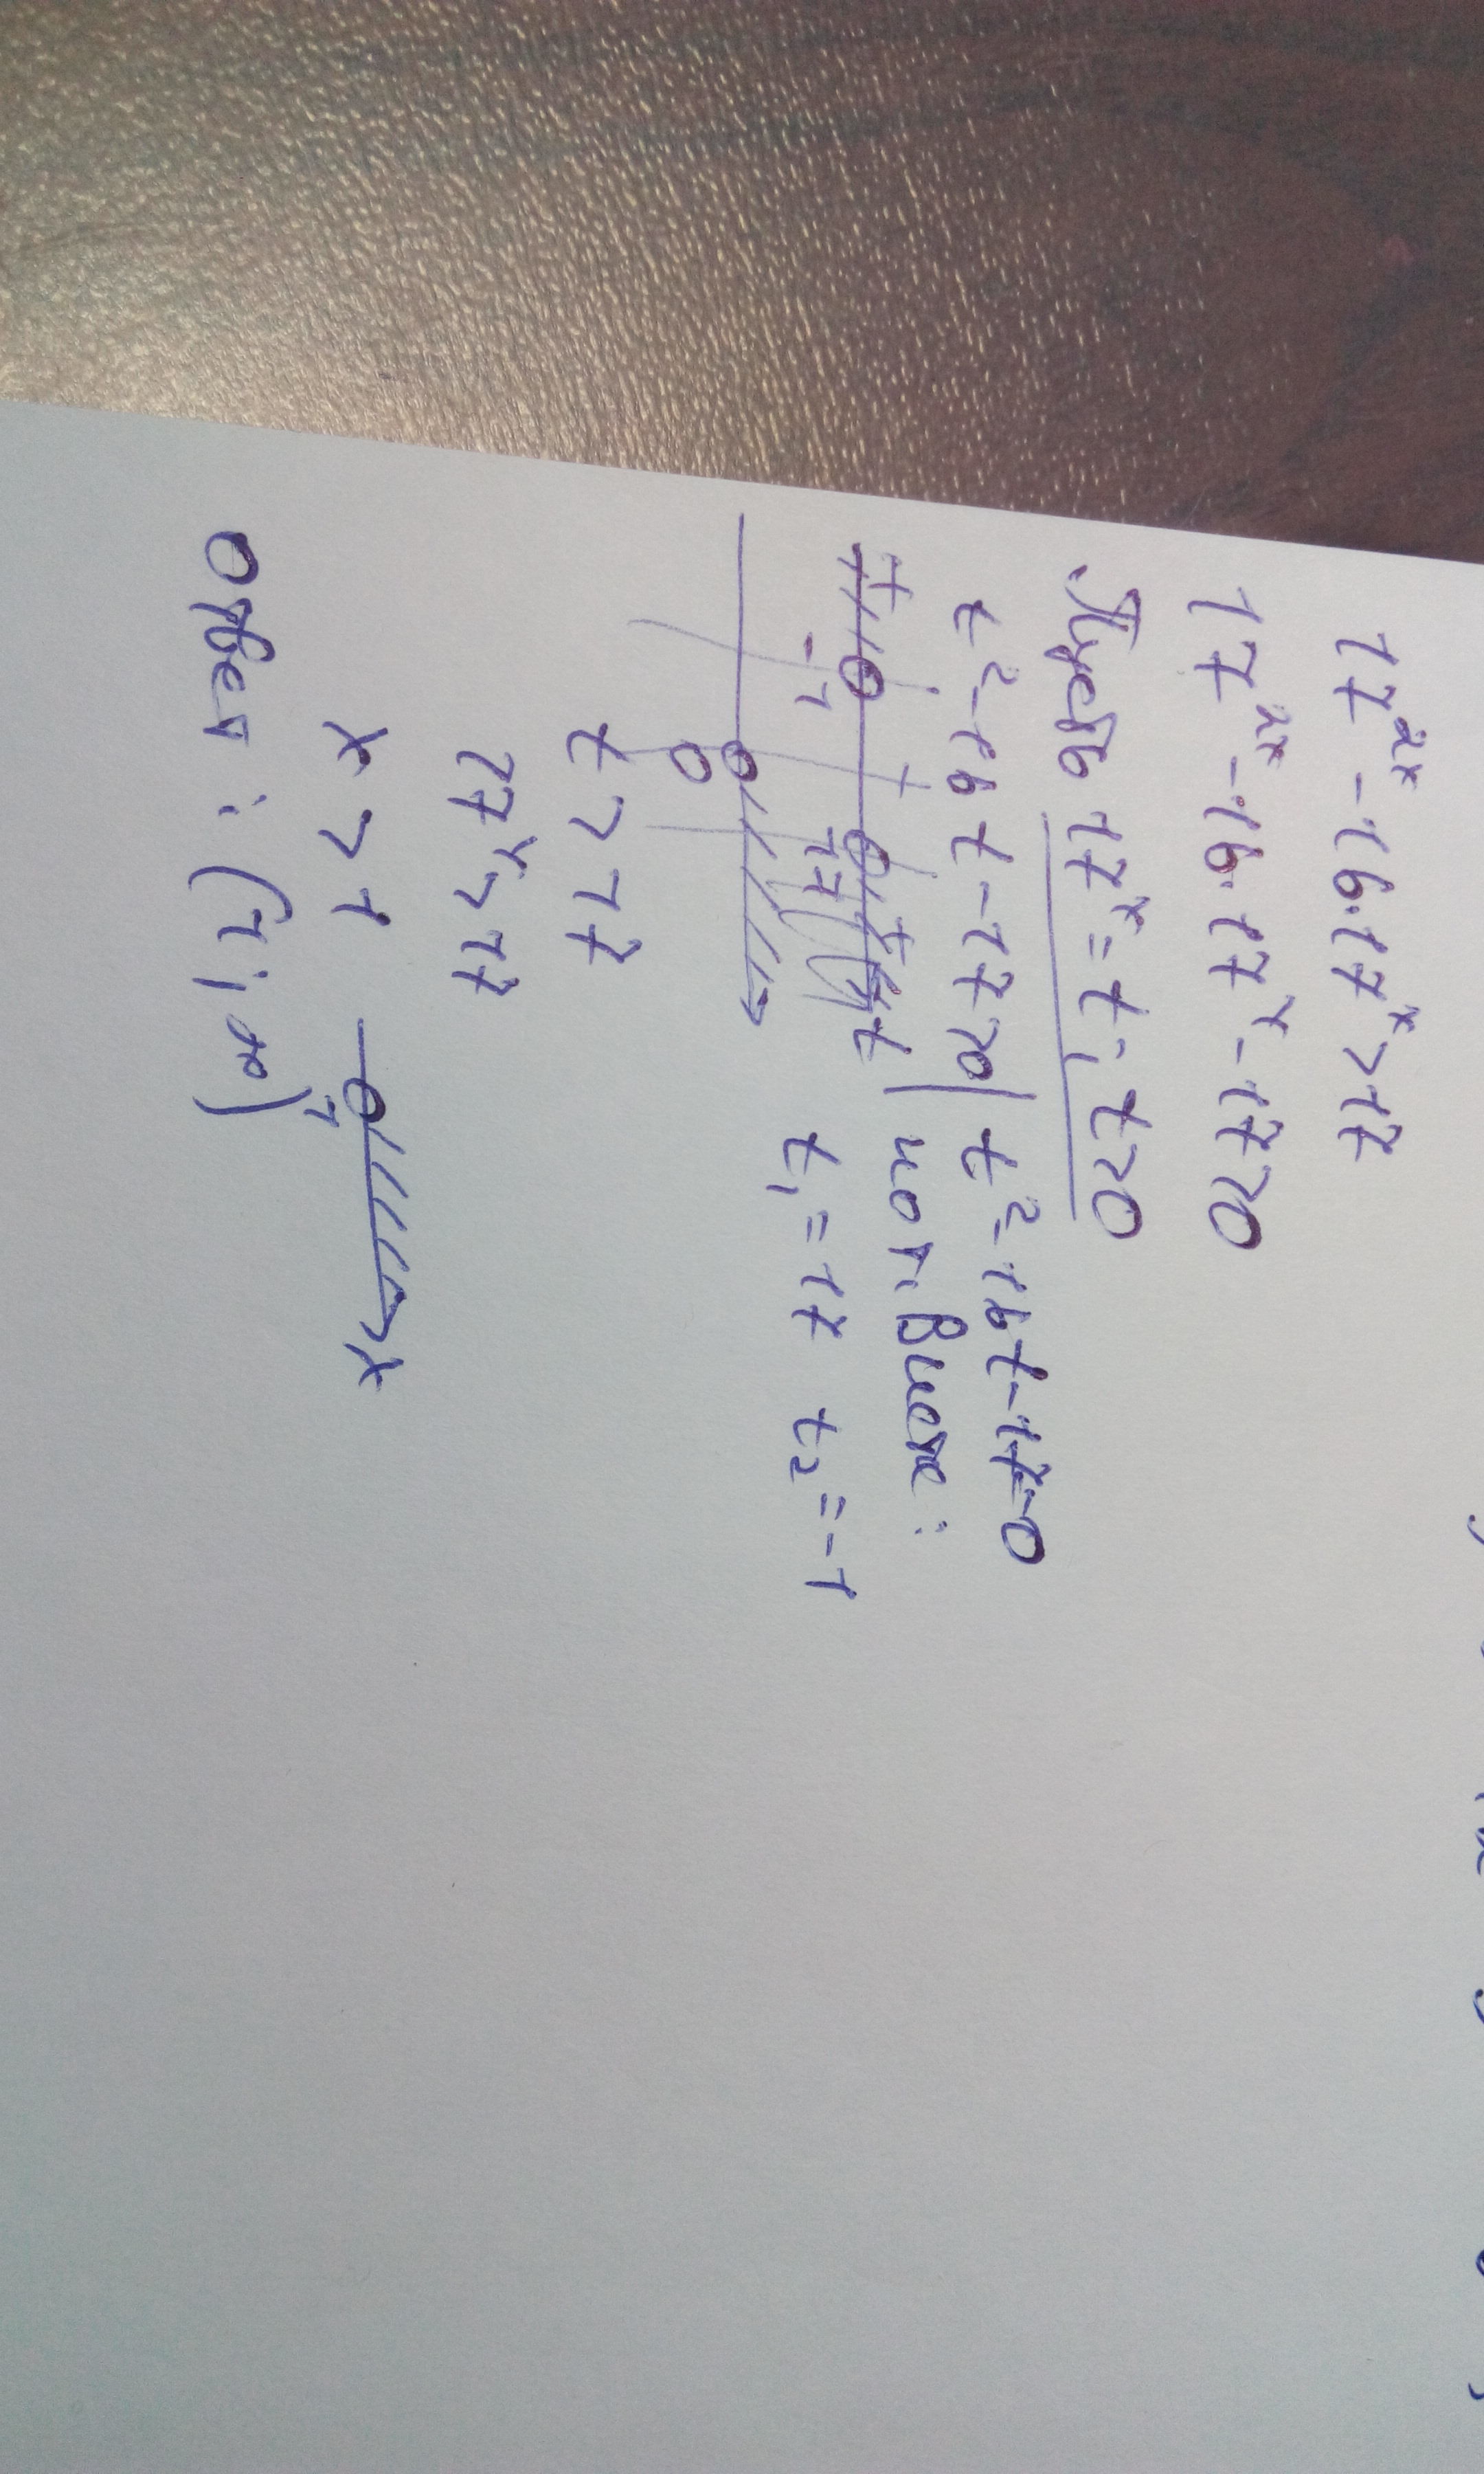 17^2x - 16·17^x > 17
17^2x - 16·17^x - 17 > 0
Пусть 17^x = t; t > 0
t^2 - 16t - 17 > 0 | t^2 - 16t - 17 = 0
по т. Виета:
t₁ = 17 t₂ = -1
+ - + t
-1 17
0
t > 17
17^x > 17
x > 1
1 x
Ответ: (1; +∞)